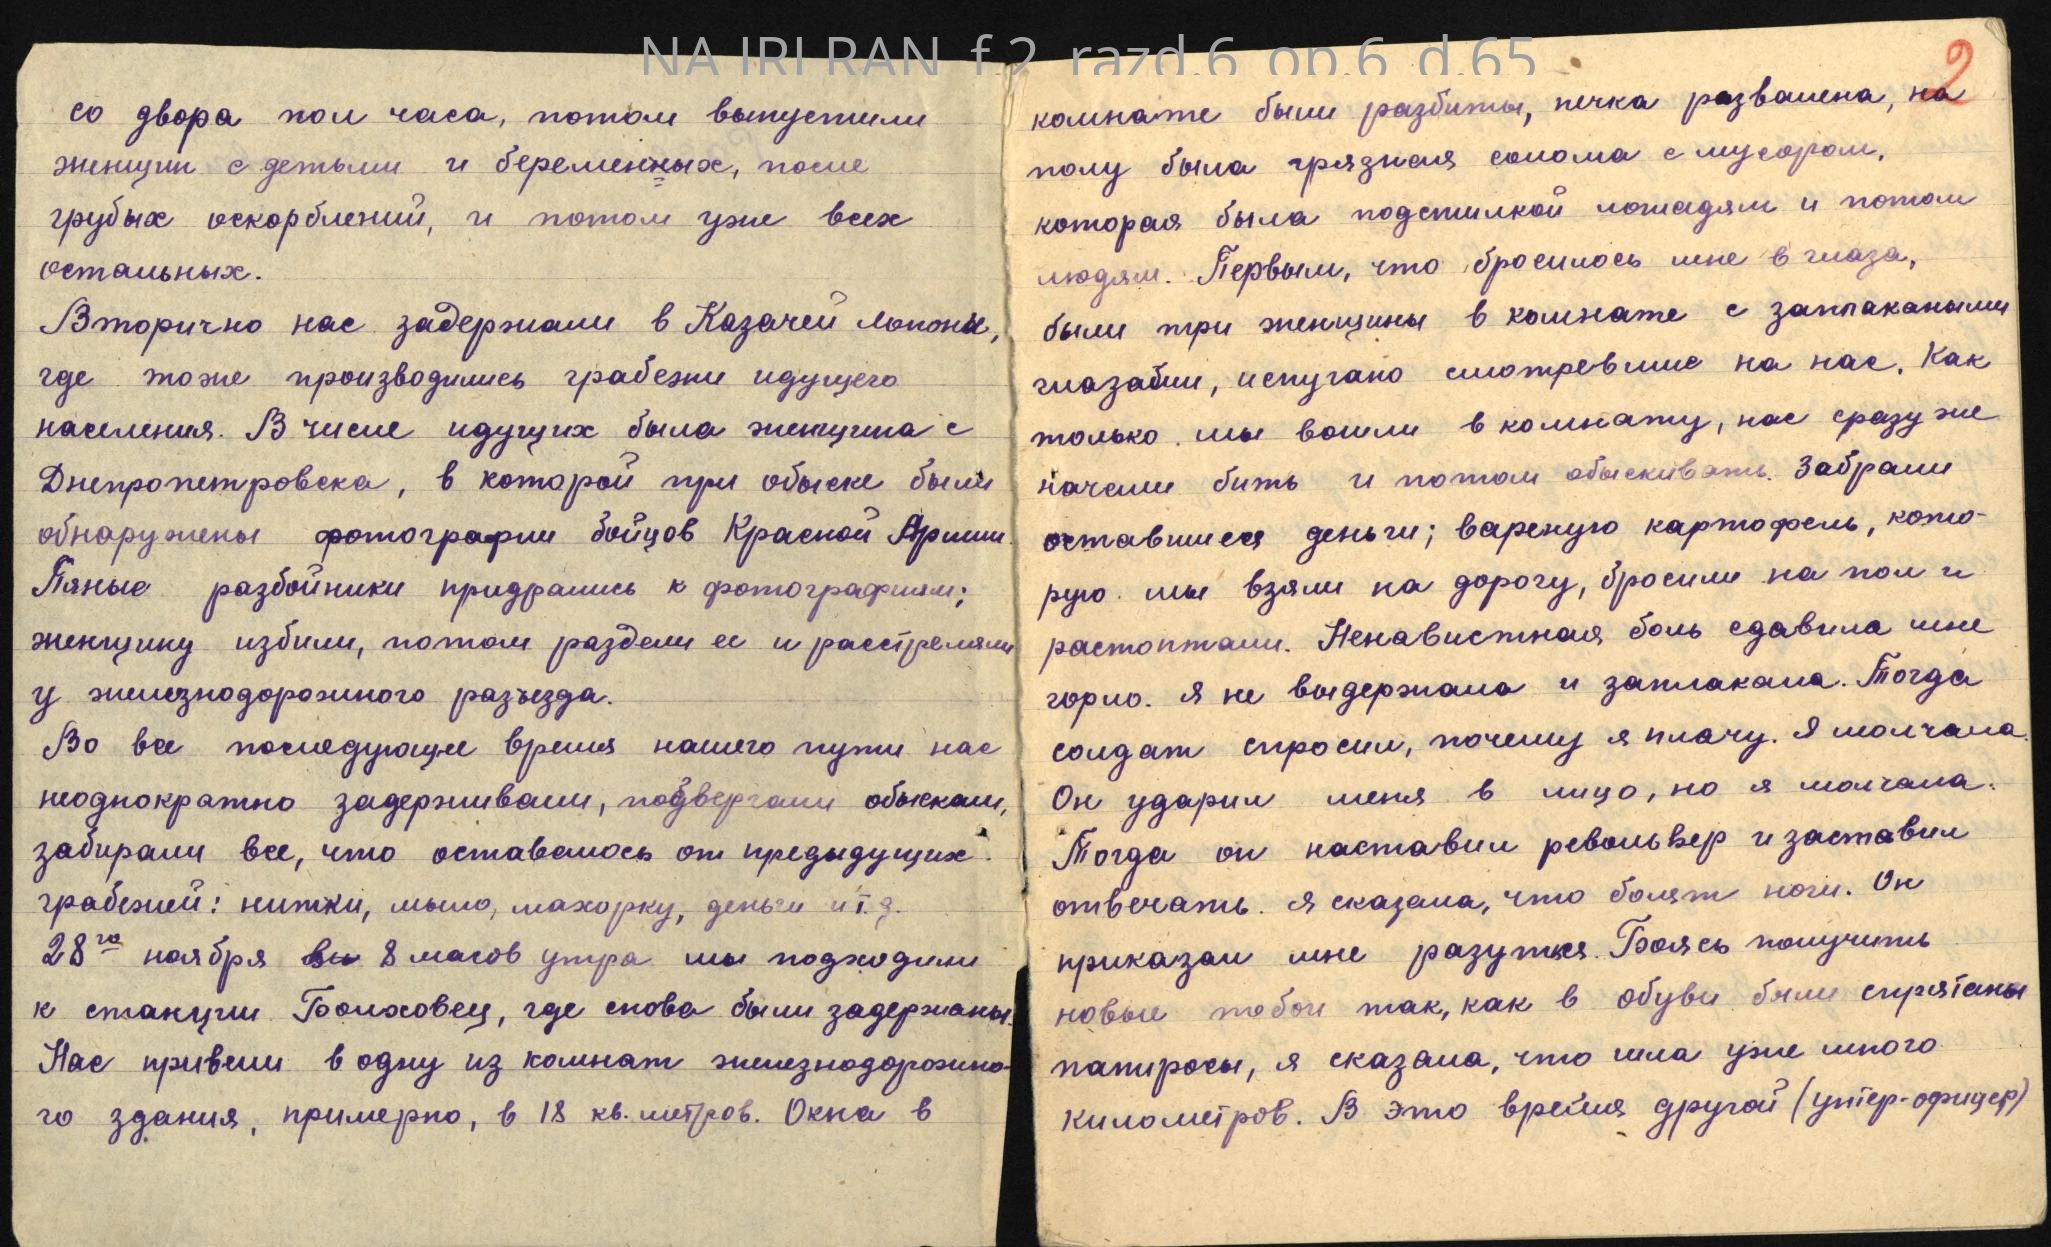 NA IRI RAN f.2 razd.6 op.6 d.65
со двора пол часа, потом выпустили
женщин с детьми и беременных, после
грубых оскорблений, и потом уже всех
остальных.
Вторично нас задержали в Казачей лопони,
где тоже производились грабежи идущего
населения. В числе идущих была женщина с
Днепропетровска, в которой при обыске были
обнаружены фотографии бойцов Красной Армии.
Пяные разбойники придрались к фотографиям;
женщину избили, потом раздели ее и расстреляли
у железнодорожного разъезда.
Во все последующее время нашего пути нас
неоднократно задерживали, подвергали обыскам,
забирали все, что оставалось от предыдущих
грабежей: нитки, мыло, махорку, деньги и т.д.
28го ноября 8 масов утра мы подходили
к станции Болховец, где снова были задержаны.
Нас привели в одну из комнат железнодорожно-
го здания, примерно, в 18 кв. метров. Окна в
2
комнате были разбиты, печка развалена, на
полу была грязная солома с мусором,
которая была подстилкой лошадям и потом
людям. Первым, что бросилось мне в глаза,
были три женщины в комнате с заплакаными
глазами, испугано смотревшие на нас. Как
только мы вошли в комнату, нас сразу же
начали бить и потом обыскивать. Забрали
оставшиеся деньги; вареную картофель, кото-
рую мы взяли на дорогу, бросили на пол и
растоптали. Ненавистная боль сдавила мне
горло. Я не выдержала и заплакала. Тогда
солдат спросил, почему я плачу. Я молчала.
Он ударил меня в лицо, но я молчала.
Тогда он наставил револьвер и заставил
отвечать. Я сказала, что болят ноги. Он
приказал мне разуться. Боясь получить
новые побои так, как в обуви были спрятаны
папиросы, я сказала, что шла уже много
километров. В это время другой (унтер-офицер)